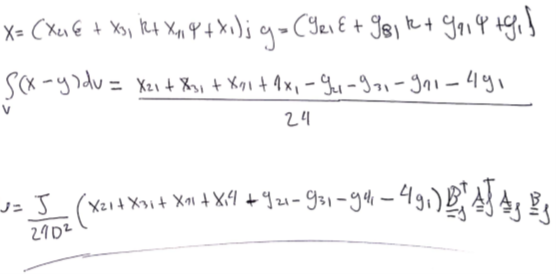 x = (x₂₁ε + x₃₁k + x₄₁φ + x₁); y = (y₂₁ε + y₃₁k + y₄₁φ + y₁)
∫(x-y)dv = x₂₁ + x₃₁ + x₄₁ + 4x₁ - y₂₁ - y₃₁ - y₄₁ - 4y₁
v
24
= J/240² (x₂₁ + x₃₁ + x₄₁ + x₁4 + y₂₁ - y₃₁ - y₄₁ - 4y₁) Bᵀ Aᵀ A B